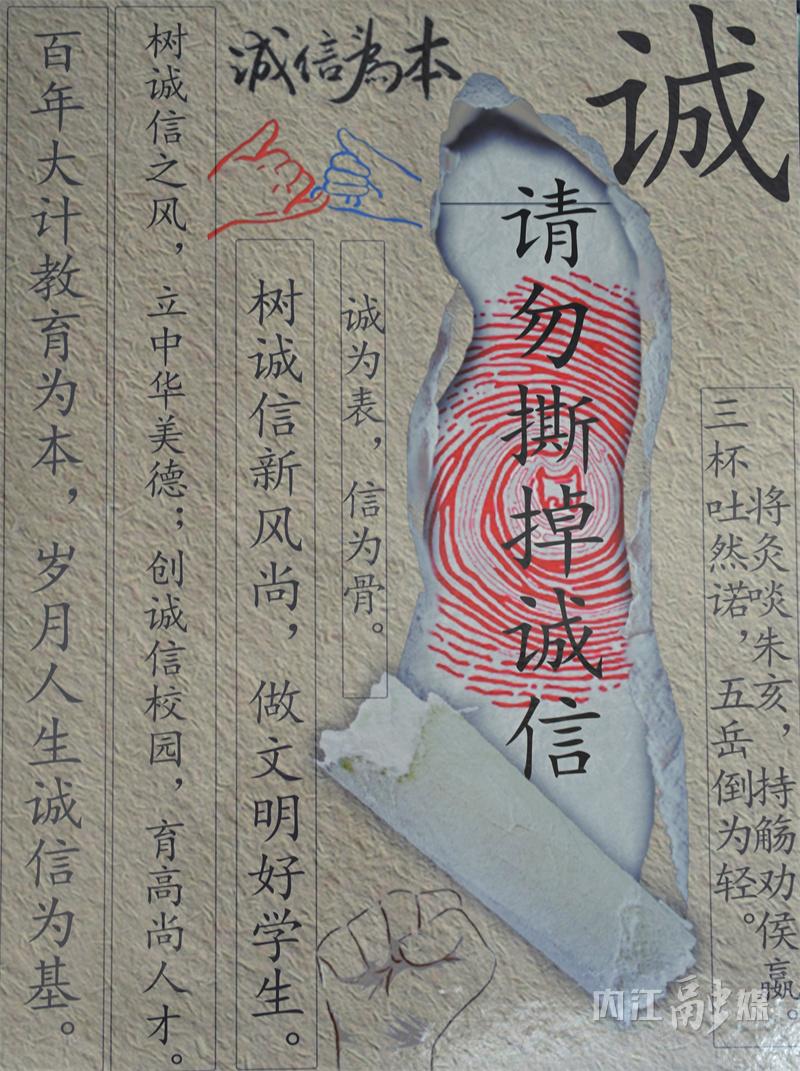 诚
将炙啖朱亥，持觞劝侯嬴。
三杯吐然诺，五岳倒为轻。
请勿撕掉诚信
诚信為本
诚为表，信为骨。
树诚信新风尚，做文明好学生。
树诚信之风，立中华美德；创诚信校园，育高尚人才。
百年大计教育为本，岁月人生诚信为基。
内江融媒